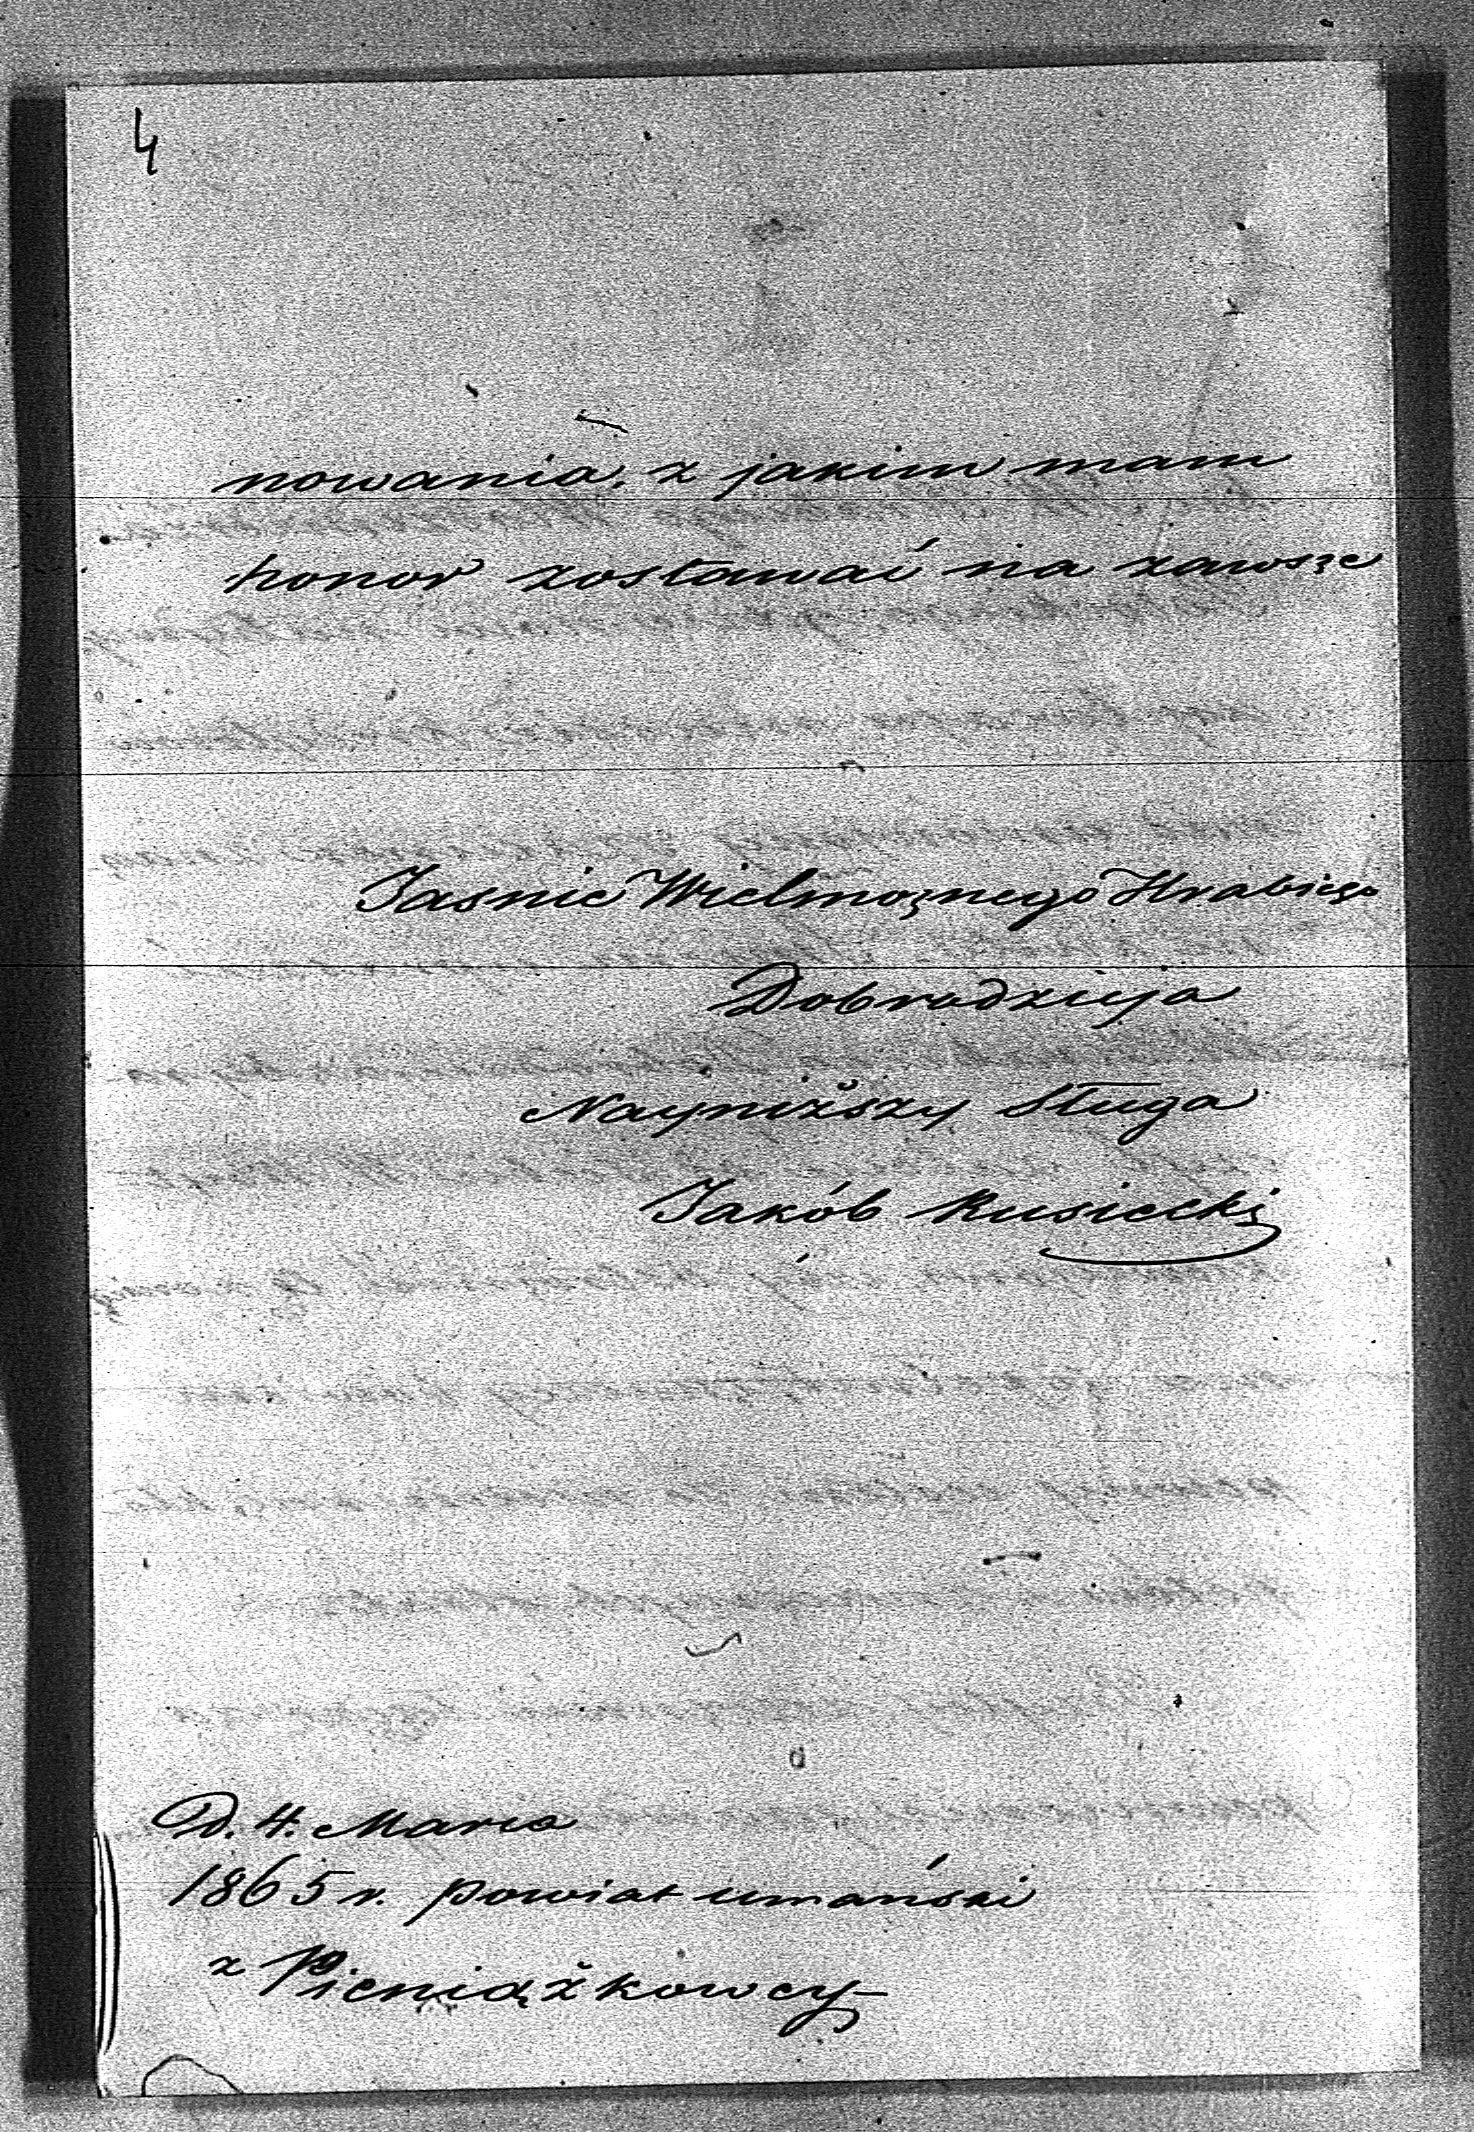 4
nowania, z jakim mam
honor zostawać na zawsze
Jasnie Wielmożnego Hrabiego
Dobrodzieja
Nayniższy Sługa
Jakób Rusiecki
D. 4. Marca
1865 r. powiat umański
z Pieniążkowcy